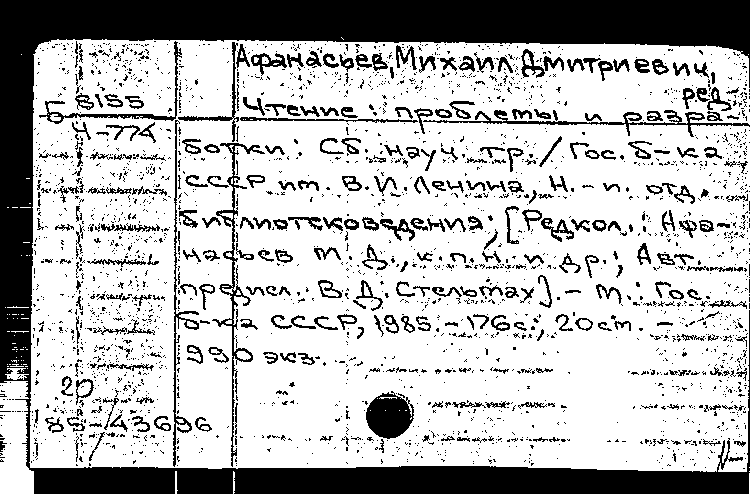 Афанасьев, Михаил Дмитриевич,
ред.
Б 8155 Чтение: проблемы и разра-
Ч-774
ботки: Сб. науч. тр./ Гос. б-ка
СССР им. В.И. Ленина, Н.-и. отд.
библиотековедения; [Редкол.: Афа-
насьев М. Д., к.п.н. и др.; Авт.
предисл. В.Д. Стельмах]. - М.: Гос.
б-ка СССР, 1985. - 176с.; 20см. -
990 экз.
20
85-43696